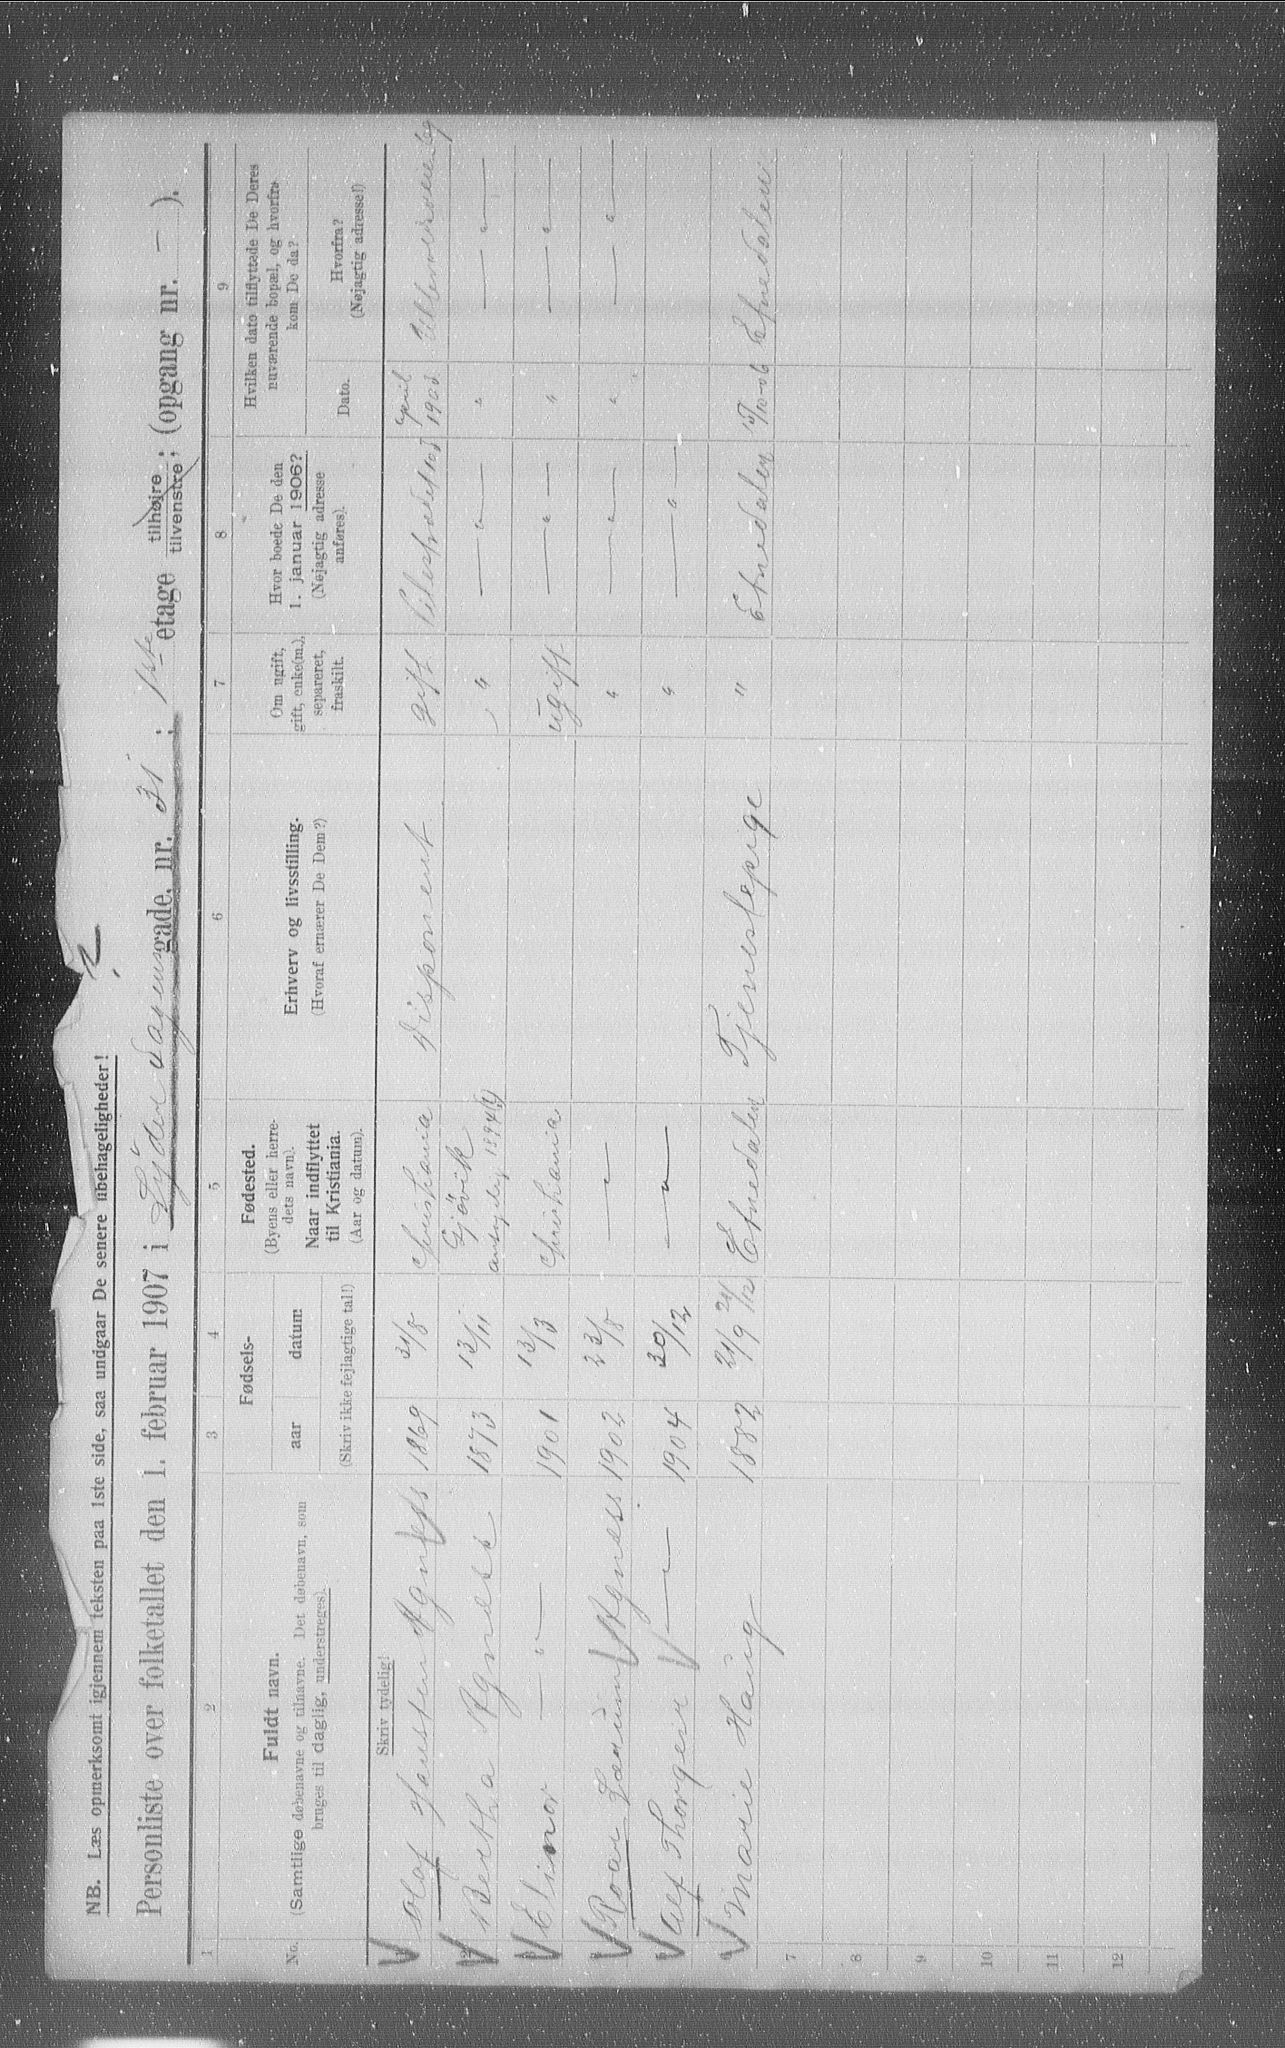 NB. Læs opmerksomt igjennem teksten paa 1ste side, saa undgaar De senere ubehageligheder!
Personliste over folketallet den 1. februar 1907 i Lyder Sagens gade, nr. 31; 1ste etage tilhøire tilvenstre; (opgang nr. — ).
1 2 3 4 5 6 7 8 9
No.
Fuldt navn.
(Samtlige døbenavne og tilnavne. Det døbenavn, som
bruges til daglig, understreges).
Fødsels-
aar datum
(Skriv ikke fejlagtige tal!)
Fødested.
(Byens eller herre-
dets navn).
Naar indflyttet
til Kristiania.
(Aar og datum).
Erhverv og livsstilling.
(Hvoraf ernærer De Dem?)
Om ugift,
gift, enke(m.),
separeret,
fraskilt.
Hvor boede De den
1. januar 1906?
(Nøjagtig adresse
anføres).
Hvilken dato tilflyttede De Deres
nuværende bopæl, og hvorfra
kom De da?
Dato.
Hvorfra?
(Nøjagtig adresse!)
Skriv tydelig!
1 Olaf Hansten Agness 1869 31/8 Christiania Disponent gift Pilestrædet april 1906
2 Bertha Agness 1873 13/11 Gjøvik 1894 " — " — " — " —
3 Elinor — " — 1901 13/3 Christania ugift — " — " — " —
Roar Agness 1902 23/8 — " — " — " — " — " —
5 Alf Thorgeir — " — 1904 30/12 — " — " — " —
6 Marie Haug 1882 21/9 21/12 Etnedalen Tjenestepige " Etnedalen /10-06 Etnedalen
7
8
9
10
11
12